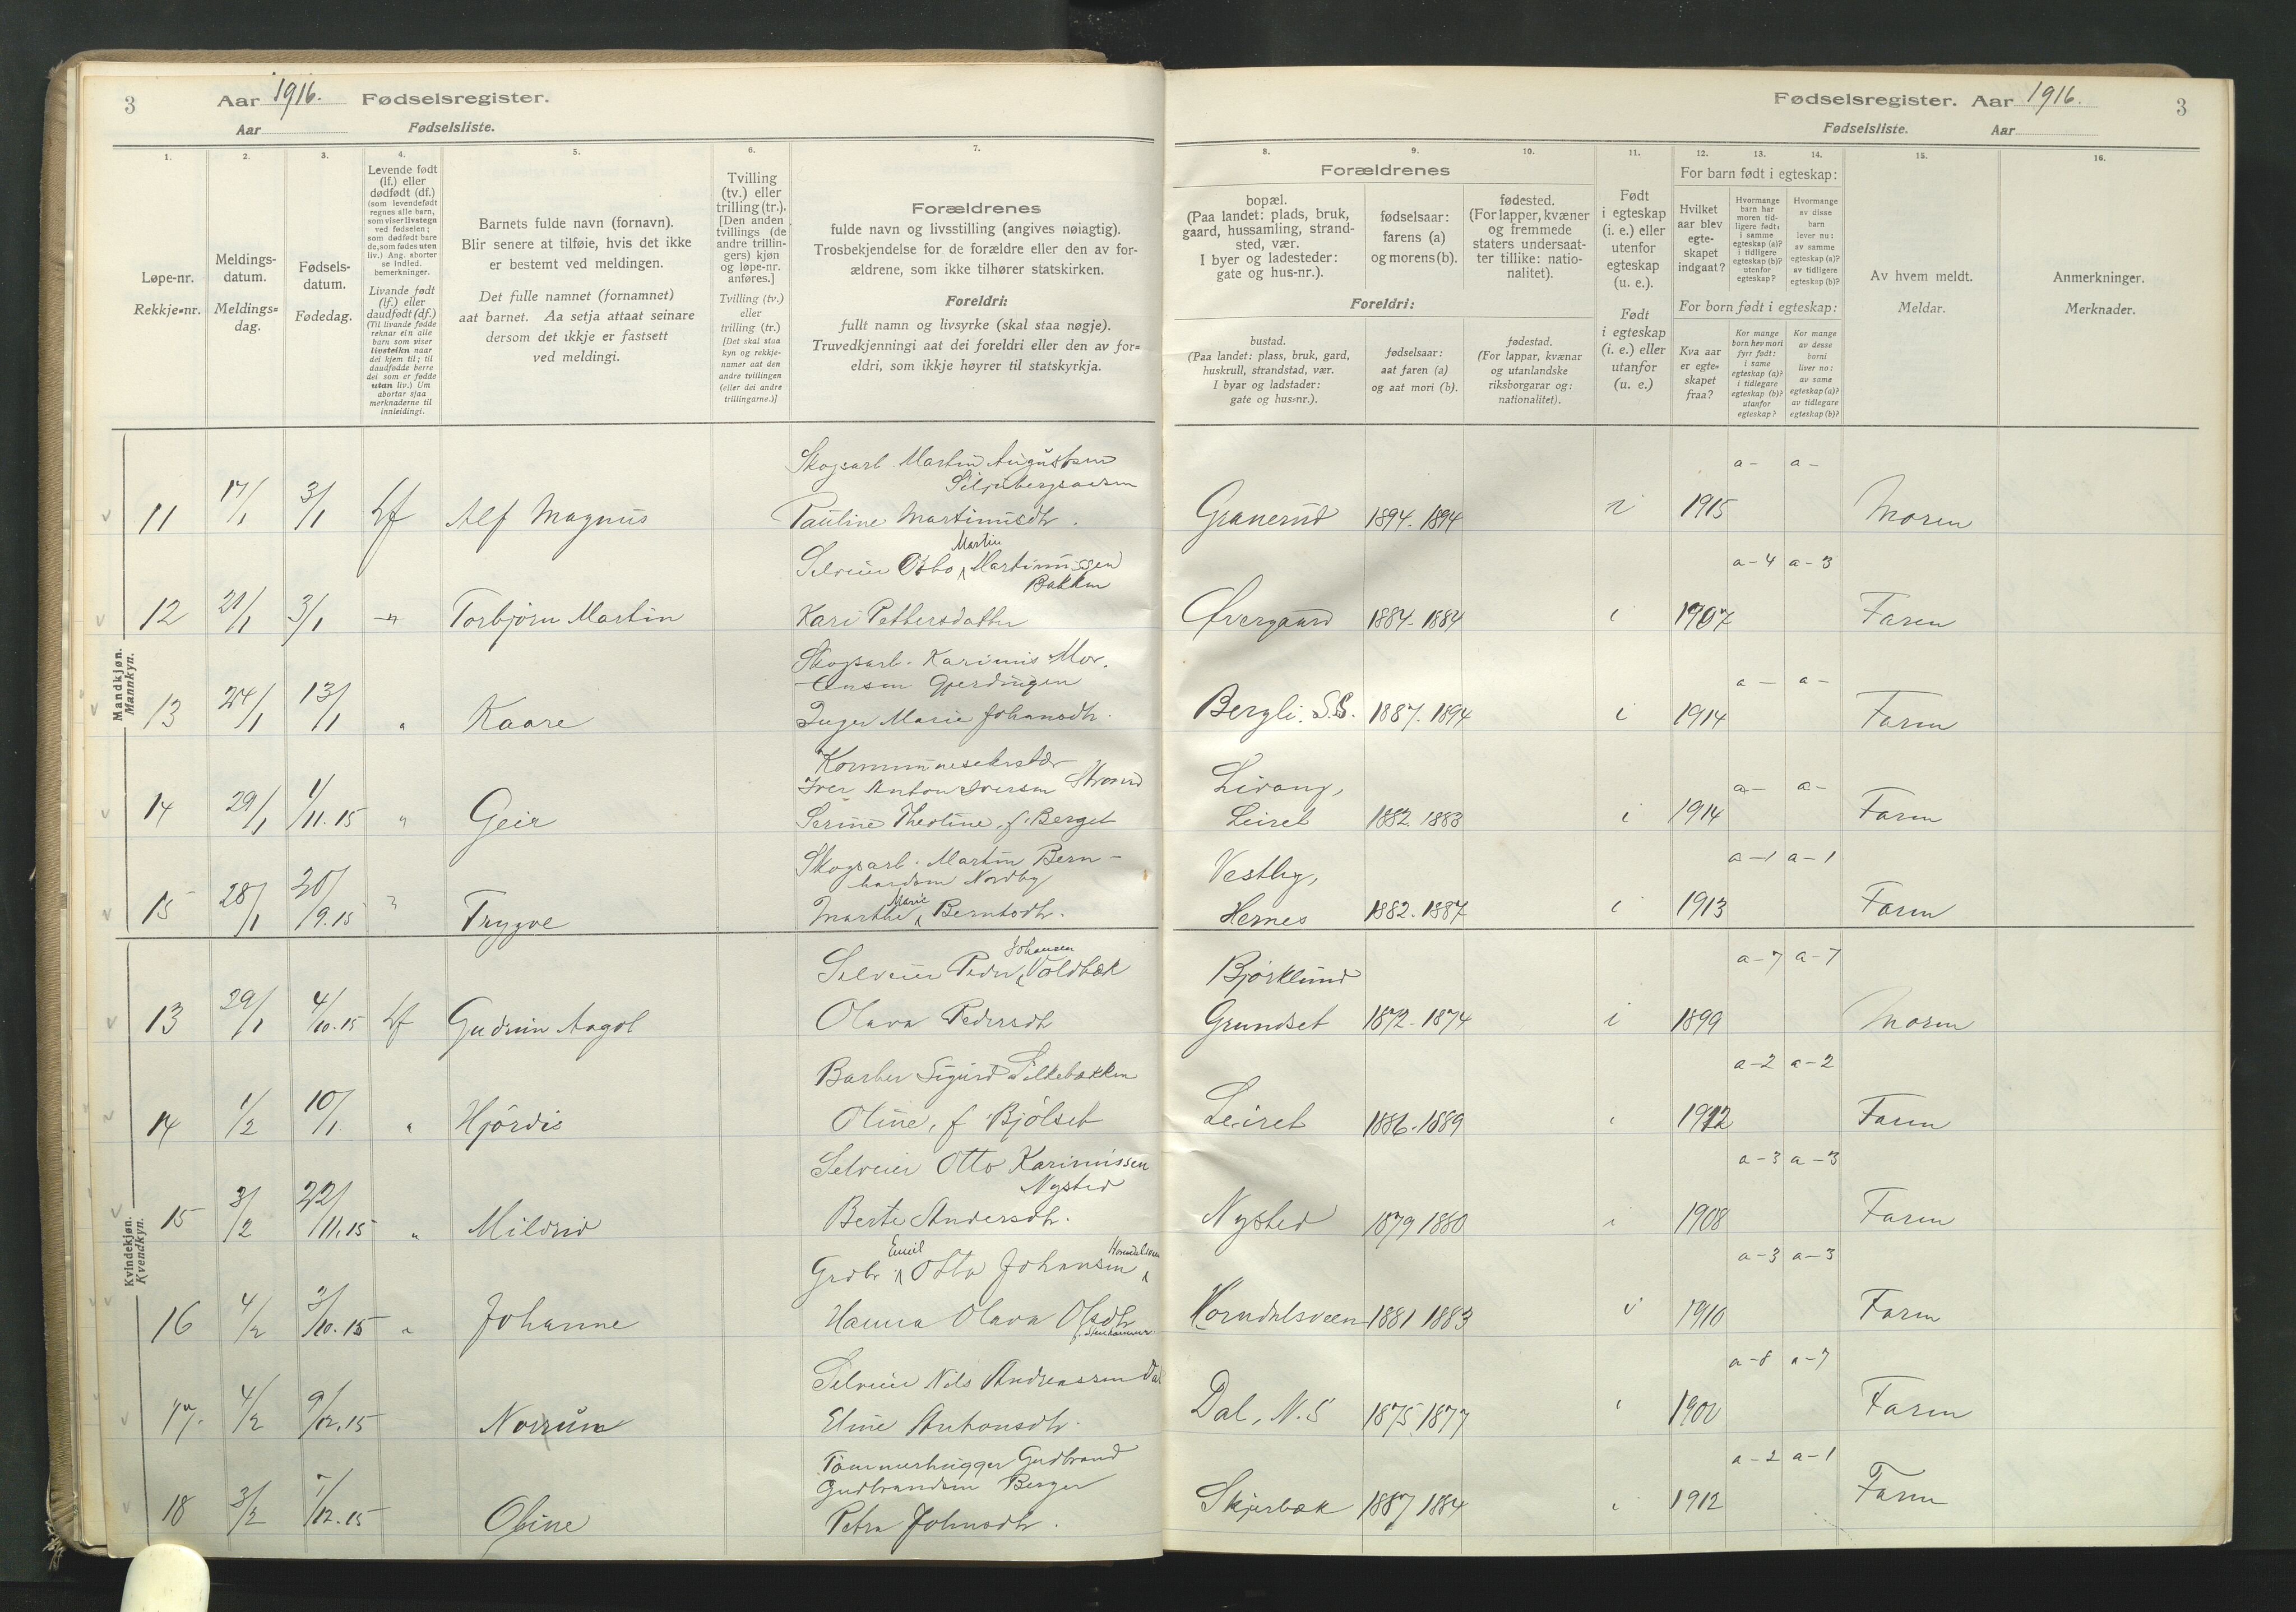 3 Aar 1916. Fødselsregister.
Aar Fødselsliste.
Fødselsregister. Aar 1916. 3
Fødselsliste. Aar
1. 2. 3. 4. 5. 6. 7.
Løpe-nr.
Rekkje=nr.
Meldings-
datum.
Meldings=
dag.
Fødsels-
datum.
Fødedag.
Levende født
(lf.) eller
dødfødt (df.)
(som levendefødt
regnes alle barn,
som viser livstegn
ved fødselen;
som dødfødt bare
de, som fødes uten
liv.) Ang. aborter
se indled.
bemerkninger.
Livande født
(lf.) eller
daudfødt (df.)
(Til livande fødde
reknar ein alle
barn som viser
livsteikn naar
dei kjem til; til
daudfødde berre
dei som er fødde
utan liv.) Um
abortar sjaa
merknaderne til
innleidingi.
Barnets fulde navn (fornavn).
Blir senere at tilføie, hvis det ikke
er bestemt ved meldingen.
Det fulle namnet (fornamnet)
aat barnet. Aa setja attaat seinare
dersom det ikkje er fastsett
ved meldingi.
Tvilling
(tv.) eller
trilling (tr.).
[Den anden
tvillings (de
andre trillin-
gers) kjøn
og løpe-nr.
anføres.]
Tvilling (tv.)
eller
trilling (tr.)
[Det skal staa
kyn og rekkje-
numer aat den
andre tvillingen
(eller dei andre
trillingarne.)]
Forældrenes
fulde navn og livsstilling (angives nøiagtig).
Trosbekjendelse for de forældre eller den av for-
ældrene, som ikke tilhører statskirken.
Foreldri:
fullt namn og livsyrke (skal staa nøgje).
Truvedkjenningi aat dei foreldri eller den av for=
eldri, som ikkje høyrer til statskyrkja.
8. 9. 10. 11. 12. 13. 14. 15. 16.
Forældrenes
bopæl.
(Paa landet: plads, bruk,
gaard, hussamling, strand-
sted, vær.
I byer og ladesteder:
gate og hus-nr.).
fødselsaar:
farens (a)
og morens (b).
fødested.
(For lapper, kvæner
og fremmede
staters undersaat-
ter tillike: natio-
nalitet).
Foreldri:
bustad.
(Paa landet: plass, bruk, gard,
huskrull, strandstad, vær.
I byar og ladstader:
gate og hus=nr.).
fødselsaar:
aat faren (a)
og aat mori (b).
fødestad.
(For lappar, kvænar
og utanlandske
riksborgarar og:
nationalitet).
Født
i egteskap
(i. e.) eller
utenfor
egteskap
(u. e.).
Født
i egteskap
(i. e.) eller
utanfor
(u. e.)
For barn født i egteskap:
Hvilket
aar blev
egte-
skapet
indgaat?
Hvormange
barn har
moren tid-
ligere født:
i samme
egteskap (a)?
i tidligere
egteskap (b)?
utenfor
egteskap?
Hvormange
av disse
barn
lever nu:
av samme
egteskap (a)?
av tidligere
egteskap (b)?
For born født i egteskap:
Kva aar
er egte=
skapet
fraa?
Kor mange
born hev mori
fyrr født:
i same
egteskap (a)?
i tidlegare
egteskap (b)?
utanfor
egteskap?
Kor mange
av desse
borni
liver no:
av same
egteskap (a)?
av tidlegare
egteskap (b)?
Av hvem meldt.
Meldar.
Anmerkninger.
Merknader.
Mandkjøn.
Mannkyn.
Skogsarb. Martin Augustsen
a - a -
11 17/1 3/1 Lf Alf Magnus Pauline Martinusdtr. Granerud 1894. 1894 i 1915 Moren
Martin
Selveier Otto Martinussen a-4 a-3
Bakken
12 21/1 3/1 Torbjørn Martin Kari Pettersdatter Øvergaard 1884-1884 i 1907 Faren
Skogsarb. Karinus Mor-
tensen Gjerdingen a - a -
13 24/1 13/1 " Kaare Inger Marie Johansdtr. Bergli. S.S. 1887. 1894 i 1914 Faren
Kommunesekretær
Iver Anton Iversen Strand a - a -
14 29/1 1/11.15 " Geir Serine Theoline, f. Berget Leiret 1882. 1883 i 1914 Faren
Skogsarb. Martin Bern- Vestby, a-1 a-1
hardsen Nordby
Marie
15 28/1 30/9.15 " Trygve Marthe Berntsdtr. Hernes 1882. 1887 i 1913 Faren
Kvindekjøn.
Kvendkyn.
Johansen
Selveier Peder Voldbæk Bjørklund a-7 a-7
13 29/1 4/10.15 Lf Gudrun Aagot Olava Pedersdtr Grundset 1872-1874 i 1899 Moren
Barber Sigurd Silkebækken a-2 a-2
14 1/2 10/1 " Hjørdis Oline, f. Bjølset Leiret 1886-1889 i 1912 Faren
Selveier Otto Karinussen a-3 a-3
Nysted
15 3/2 22/11.15 " Mildrid Berte Andersdtr. Nysted 1879 1880 i 1908 Faren
Emil
Grdbr. Otto Johansen a-3 a-3
16 4/2 3/10.15 " Johanne Hanna Olava Olsdtr Horndalsveen 1881 1883 i 1910 Faren
Selveier Nils Andreassen Dal a-8 a-7
17. 4/2 9/12.15 Norrun Eline Antonsdtr. Dal, N.S 1875 1877 i 1900 Faren
Tømmerhugger Gudbrand
Gudbrandsen Berger a-2 a-1
18 3/2 7/12.15 Oline Petra Johnsdtr. Skjerbæk 1887 1884 i 1912 Faren